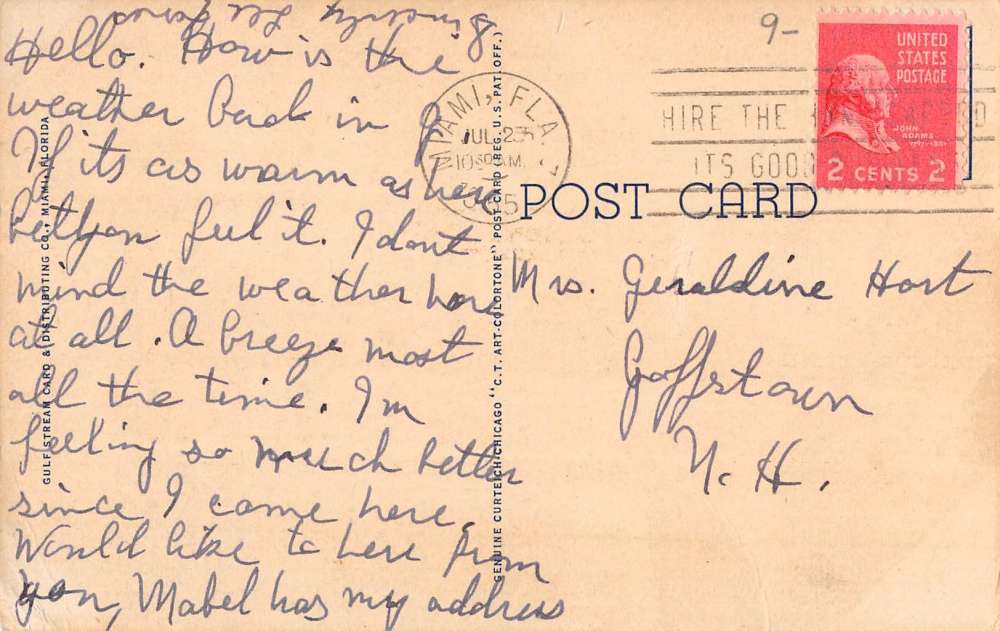 Hello. How is the
weather back in G
If its as warm as here
bet you feel it. I dont
mind the weather here
at all. A breeze most
all the time. I'm
feeling so much better
since I came here.
Would like to here from
you, Mabel has my address
Sincerely
GULF STREAM CARD & DISTRIBUTING CO., MIAMI, FLORIDA
GENUINE CURTEICH-CHICAGO "C.T. ART-COLORTONE" POST CARD (REG. U.S. PAT. OFF.)
9-
MIAMI, FLA.
JUL 23
10 30 AM
HIRE THE
ITS GOOD
UNITED
STATES
POSTAGE
JOHN
ADAMS
2 CENTS 2
POST CARD
Mrs. Geraldine Hart
Goffstown
N. H.